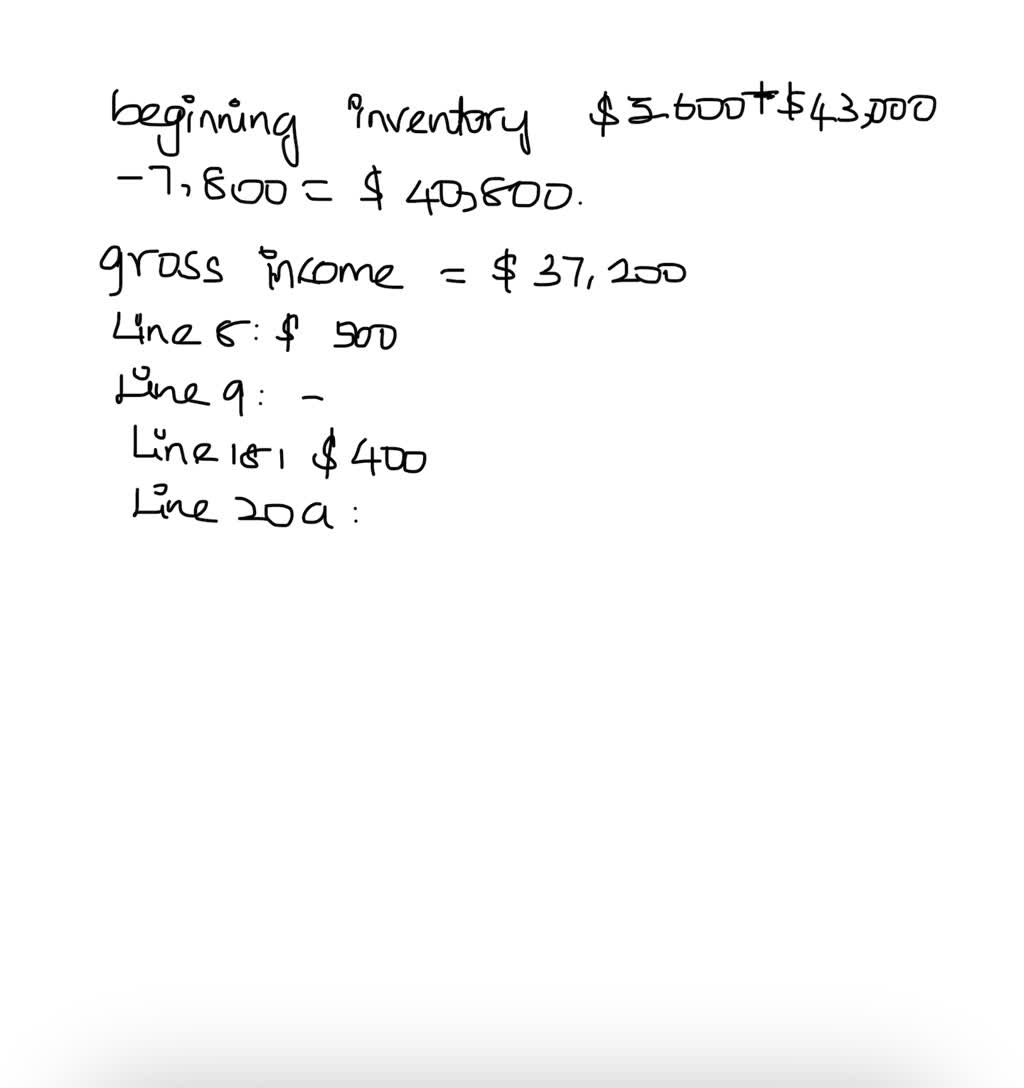 begining inventory $5.600+$43,000
-7,800 = $ 40,800.
gross income = $ 37,200
Line 8: $ 500
Line 9: -
Line 18: $ 400
Line 20a: